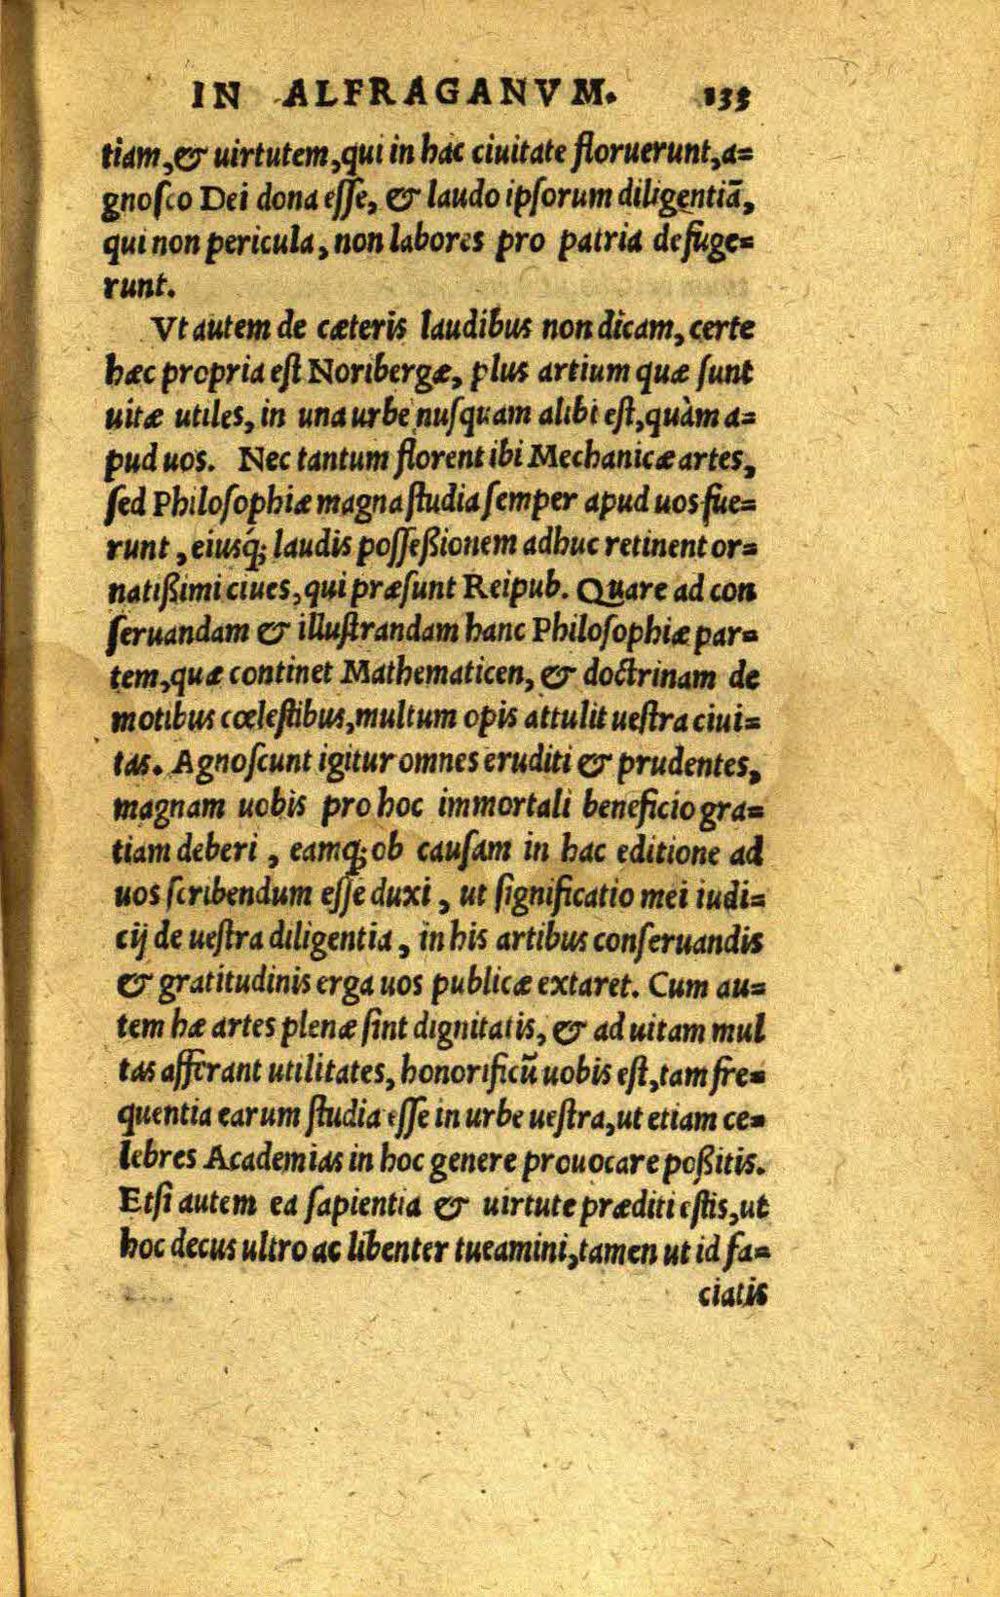 IN ALFRAGANVM. 135
tiam, & uirtutem, qui in hac ciuitate floruerunt, a=
gnoſco Dei dona eſſe, & laudo ipſorum diligentiã,
qui non pericula, non labores pro patria defuge=
runt.
Vt autem de cæteris laudibus non dicam, certe
hæc propria eſt Noribergæ, plus artium quæ ſunt
uitæ utiles, in una urbe nuſquam alibi eſt, quàm a=
pud uos. Nec tantum florent ibi Mechanicæ artes,
ſed Philoſophiæ magna ſtudia ſemper apud uos fue=
runt, eiusq́; laudis poſſeßionem adhuc retinent or=
natißimi ciues, qui præſunt Reipub. Quare ad con
ſeruandam & illuſtrandam hanc Philoſophiæ par=
tem, quæ continet Mathematicen, & doctrinam de
motibus cœleſtibus, multum opis attulit ueſtra ciui=
tas. Agnoſcunt igitur omnes eruditi & prudentes,
magnam uobis pro hoc immortali beneficio gra=
tiam deberi, eamq́; ob cauſam in hac editione ad
uos ſcribendum eſſe duxi, ut ſignificatio mei iudi=
cij de ueſtra diligentia, in his artibus conſeruandis
& gratitudinis erga uos publicæ extaret. Cum au=
tem hæ artes plenæ ſint dignitatis, & ad uitam mul
tas afferant utilitates, honorificũ uobis eſt, tam fre=
quentia earum ſtudia eſſe in urbe ueſtra, ut etiam ce=
lebres Academias in hoc genere prouocare poßitis.
Etſi autem ea ſapientia & uirtute præditi eſtis, ut
hoc decus ultro ac libenter tueamini, tamen ut id fa=
ciatis